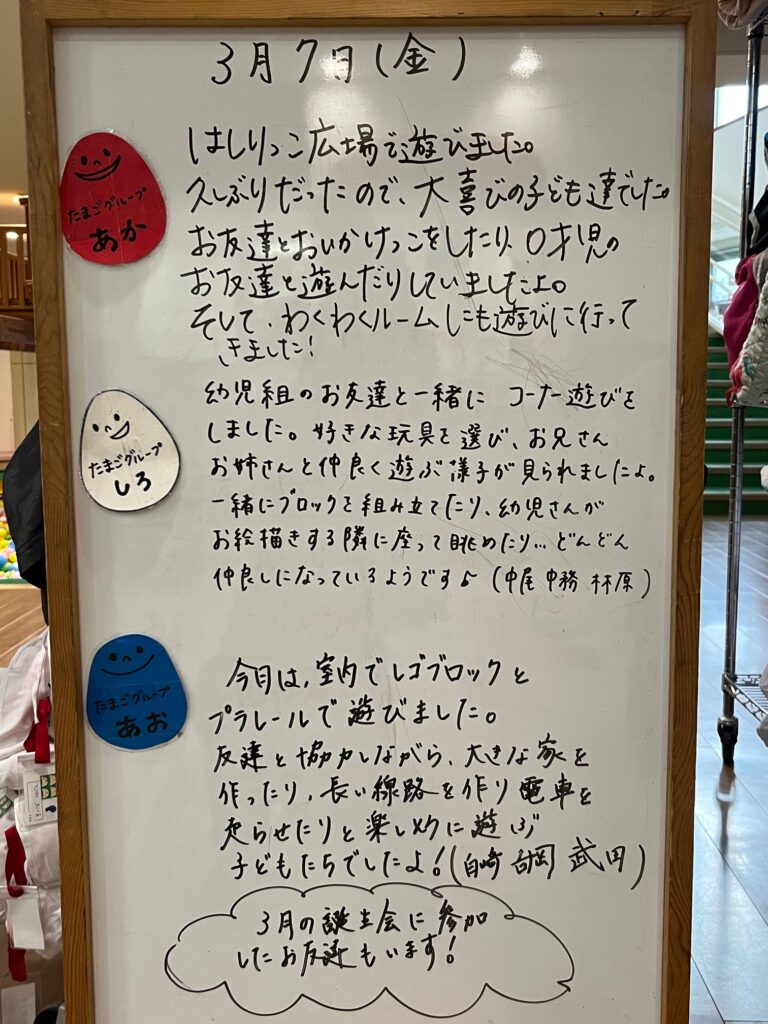 3月7日(金)
たまごグループ
あか
はしりっこ広場で遊びました。
久しぶりだったので、大喜びの子ども達でした。
お友達とおいかけっこをしたり、0才児の
お友達と遊んだりしていましたよ。
そして、わくわくルームにも遊びに行って
きました!
たまごグループ
しろ
幼児組のお友達と一緒に コーナー遊びを
しました。好きな玩具を選び、お兄さん
お姉さんと仲良く遊ぶ様子が見られましたよ。
一緒にブロックを組み立てたり、幼児さんが
お絵描きする隣に座って眺めたり...どんどん
仲良しになっているようです♪ (中尾 中務 林原)
たまごグループ
あお
今日は、室内でレゴブロックと
プラレールで遊びました。
友達と協力しながら、大きな家を
作ったり、長い線路を作り電車を
走らせたりと楽しめに遊ぶ
子どもたちでしたよ!( 武田)
3月の誕生会に参加
したお友達もいます!